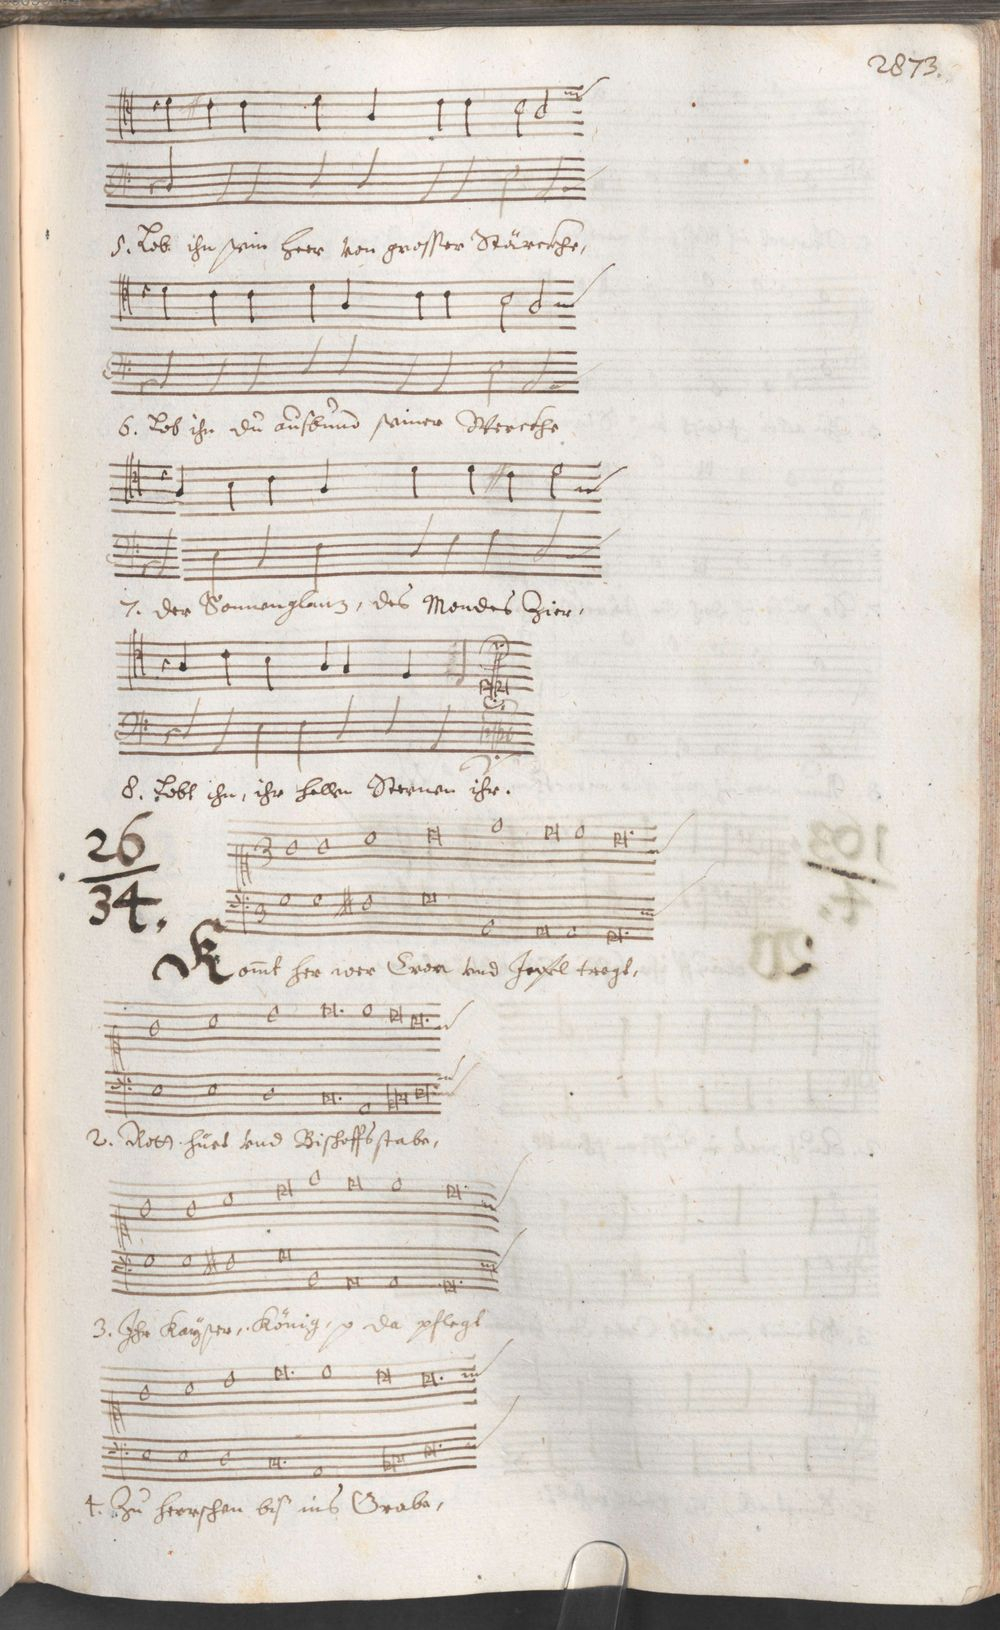 2873.
5. Lob ihn sein Heer von grosser Stärckhe,
6. Lob ihn du außbund seiner Werckhe
7. der Sonnenglantz, des Mondes Zier,
8. Lobt ihn, ihr hellen Sternen ihr.
26
34.
3
3
Kom̄t her wer Cron und Inful tregt,
2. Roth hüet und Bischoffsstabe,
3. Ihr Kaÿser, König, da pflegt
4. Zu herrschen biß ins Grabe,